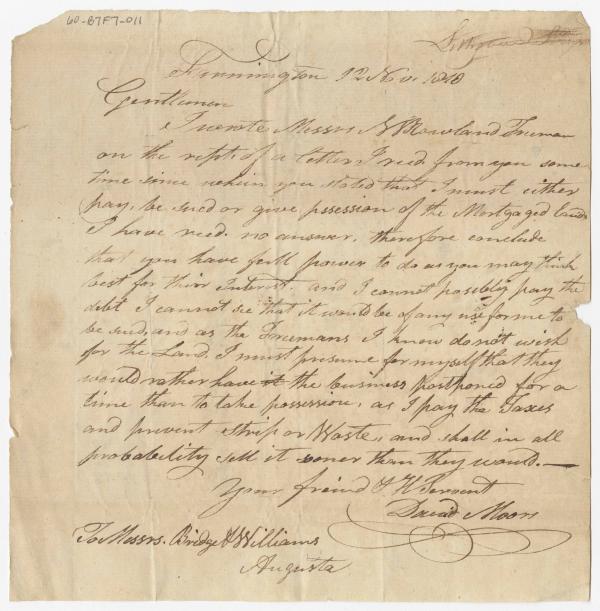 60-B7F7-011
Farmington 12 Nov. 1818
Gentlemen
I wrote Messrs N & Rowland Freeman
on the rect. of a letter I recd. from you some
time since wherin you stated that I must either
pay, be sued or give possession of the Mortgaged land.
I have recd. no answer, therefore conclude
that you have full power to do as you may think
best for their Interest. and I cannot possibly pay the
debt I cannot see that it would be of any use for me to
be sued, and as the Freemans I know do not wish
for the Land, I must presume for myself that they
would rather have it the business postponed for a
time than to take possession, as I pay the Taxes
and prevent Strip or Waste, and shall in all
probability sell it soner than they would.—
Your friend & H Servent
David Moors
To Messrs. Bridge & Williams
Augusta